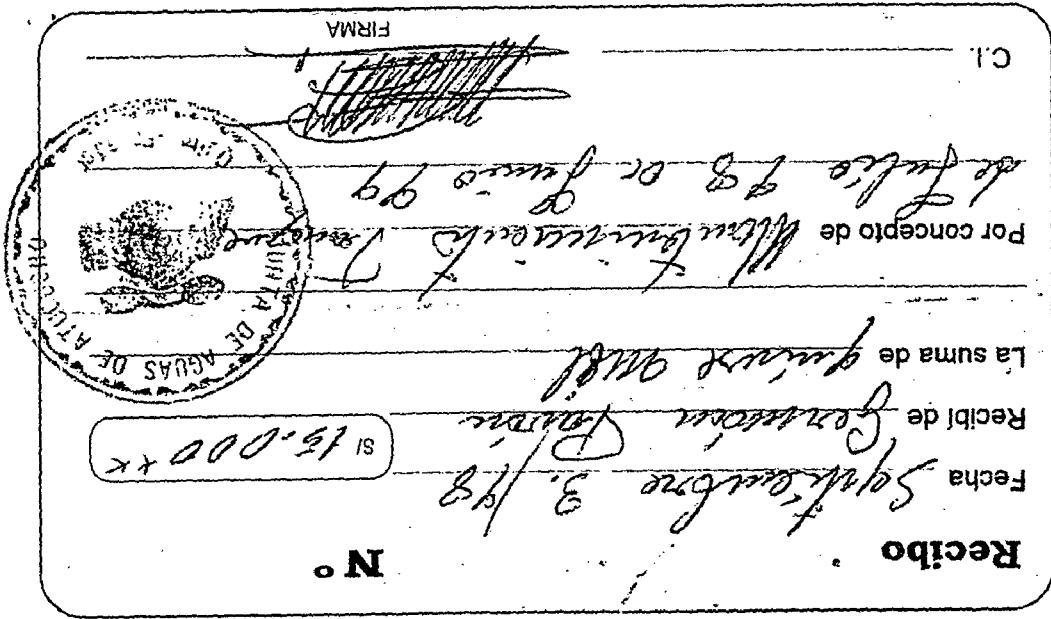 Recibo Nº
Fecha Septiembre 3./98
S/ 15.000 **
Recibí de Germán Pavón
La suma de quince mil
Por concepto de Mantenimiento Tanque
de Julio 98 a Junio 99
C.I.
FIRMA
JUNTA DE AGUAS DE